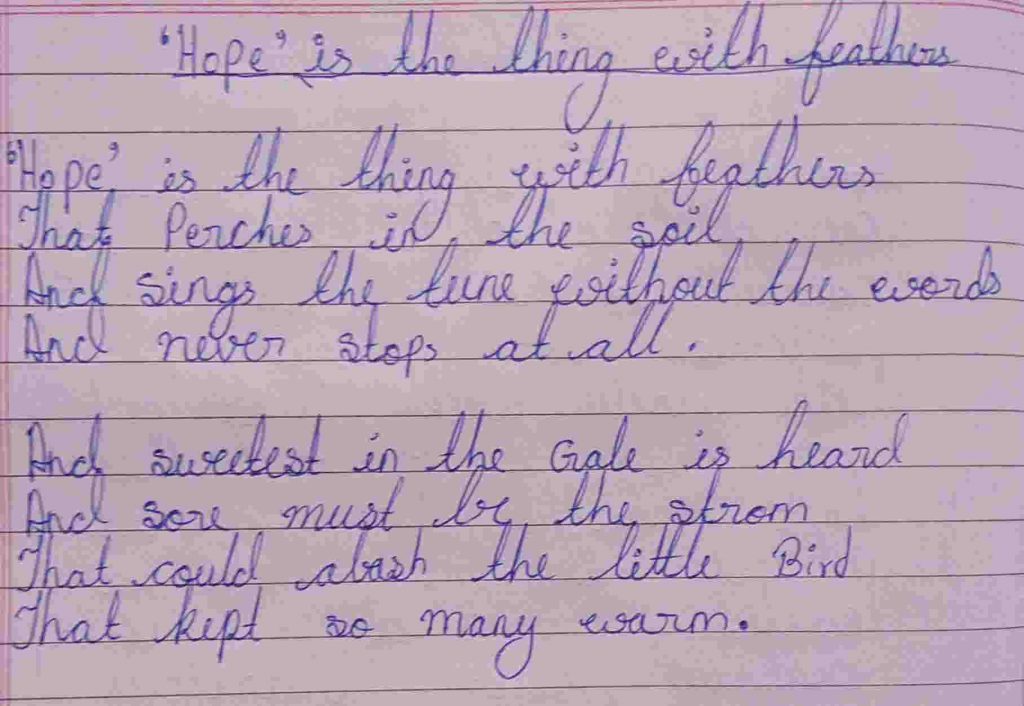 'Hope' is the thing with feathers
'Hope' is the thing with feathers
That Perches in the soil
And sings the tune without the words
And never stops at all.
And sweetest in the Gale is heard
And sore must be the strom
That could abash the little Bird
That kept so many warm.